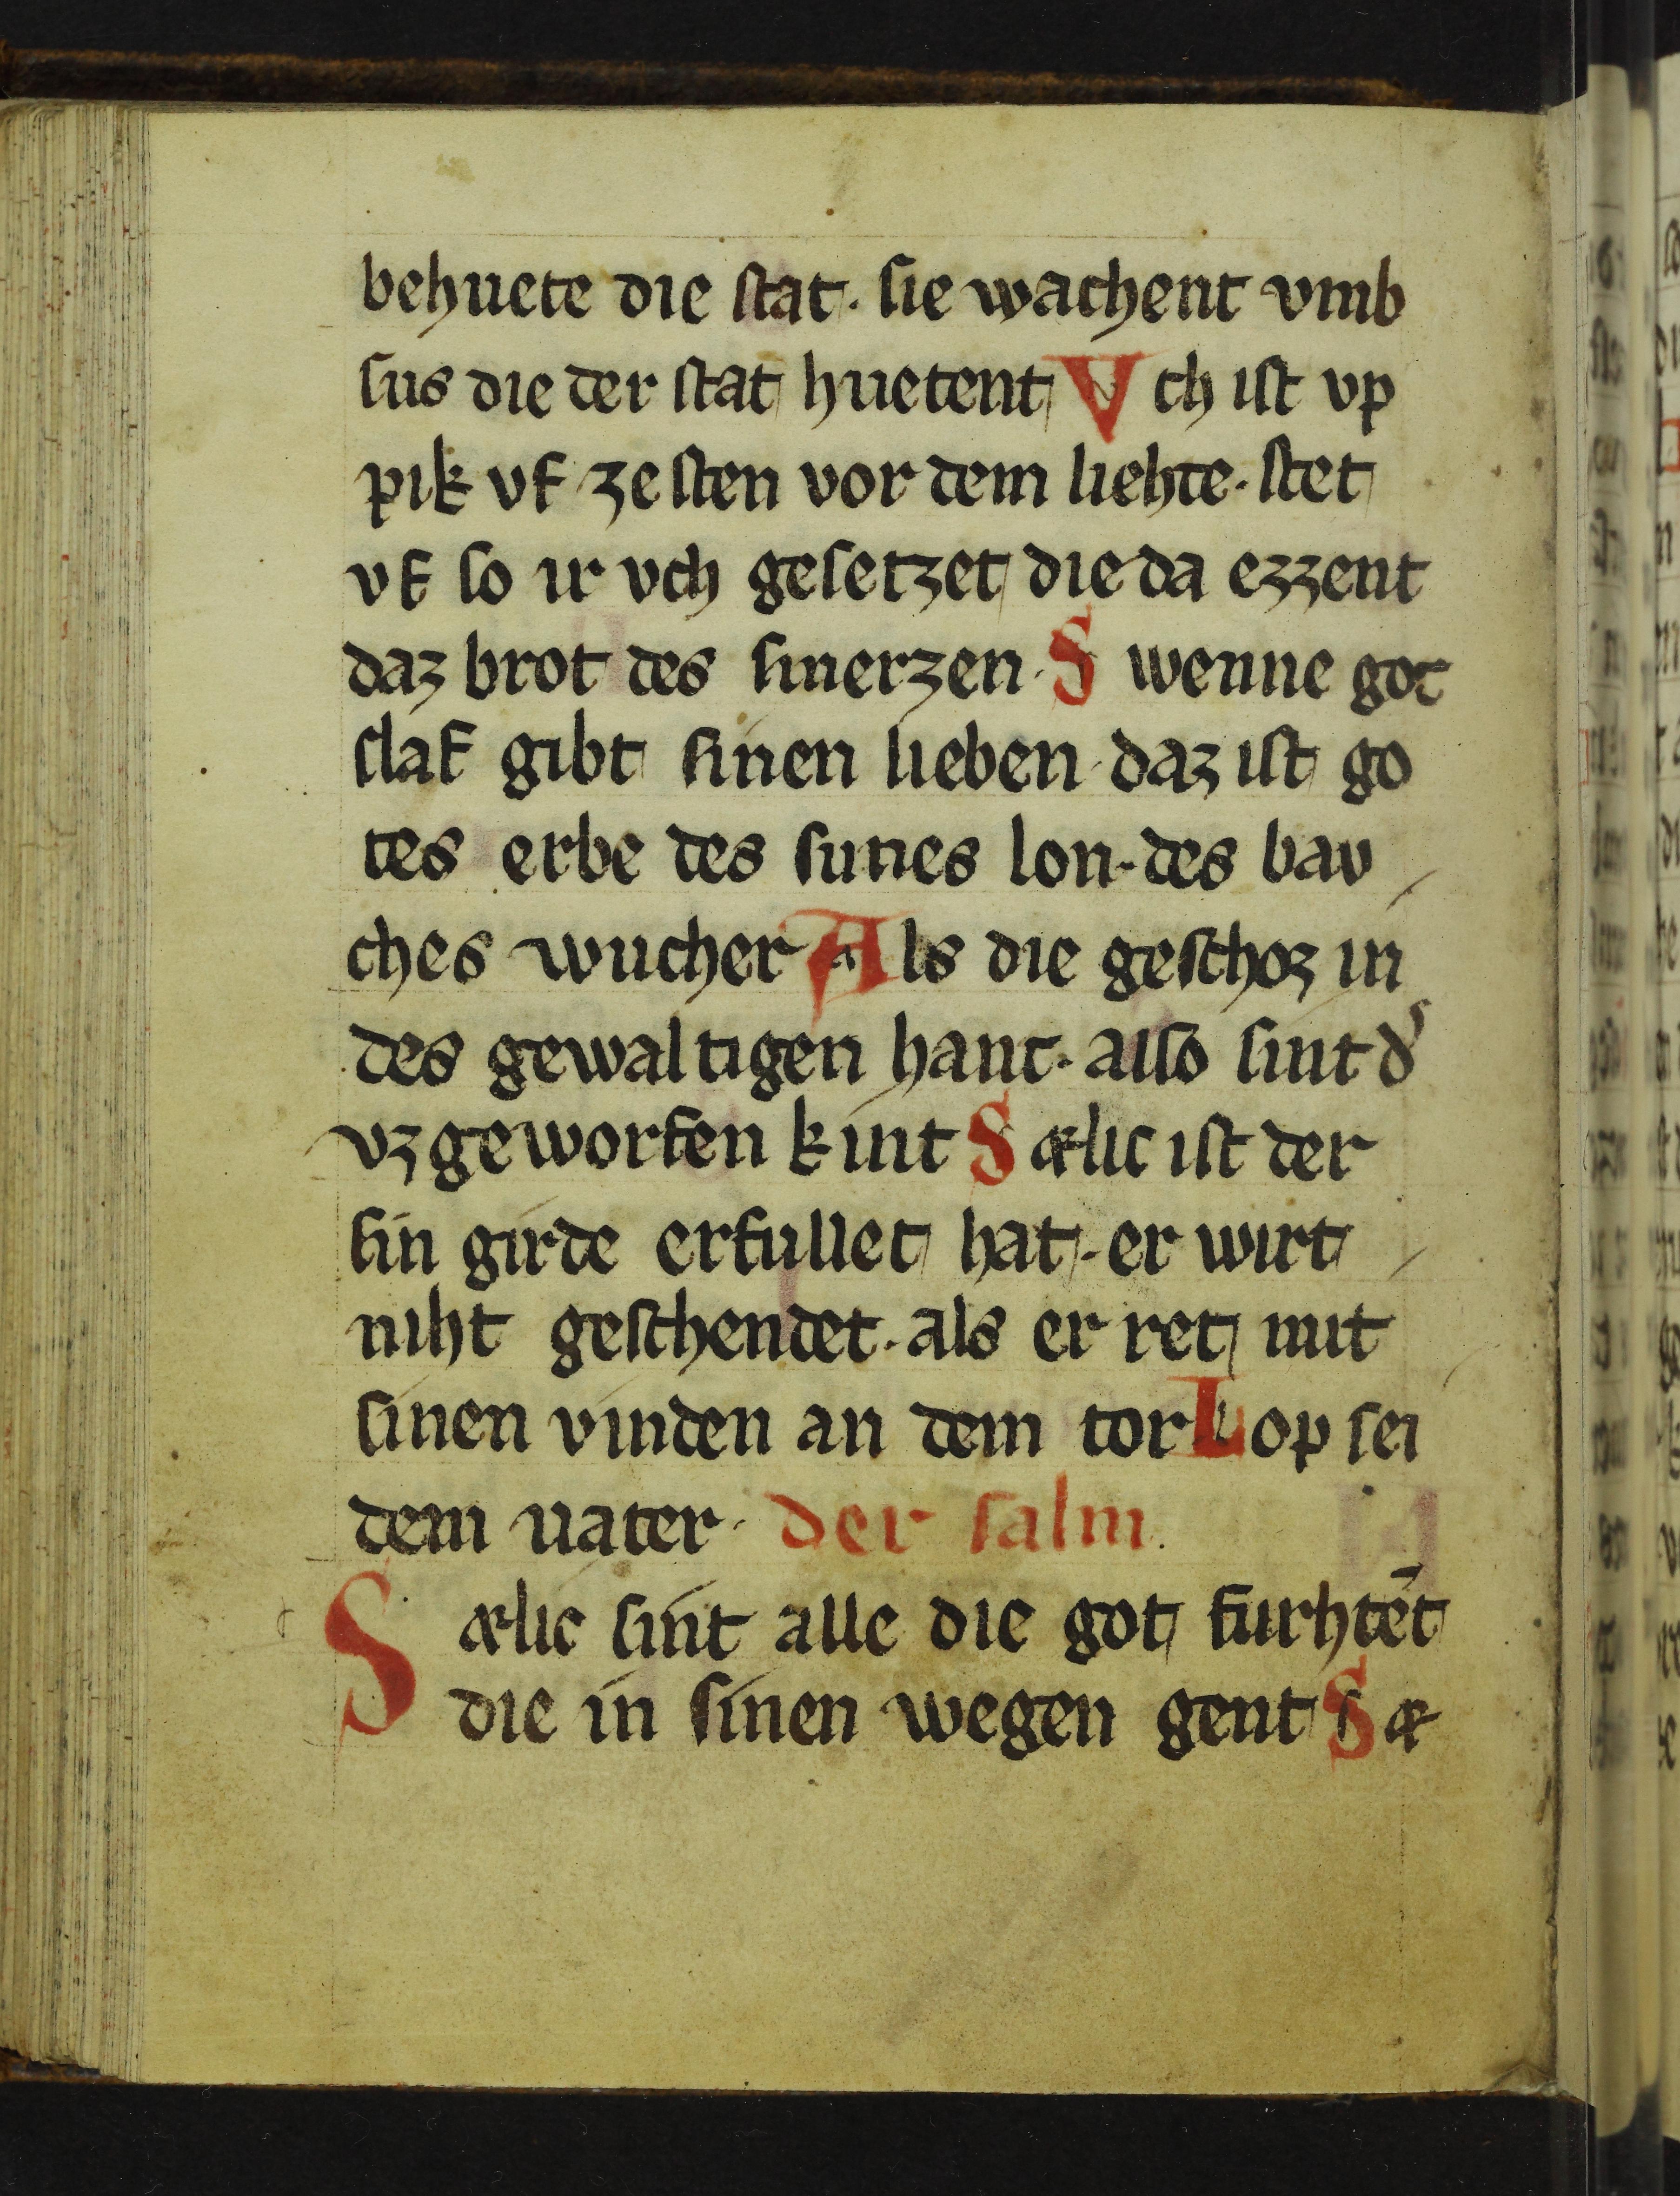 behuete die ſtat · ſie wachent vmb
ſus die der ſtat huetent Vch iſt vp
pik vf ze ſten vor dem liehte · ſtet
vf ſo ir vch geſetzet die da ezzent
daz brot des ſmerzen · Swenne got
ſlaf gibt ſinen lieben · daz iſt go
tes erbe des ſunes lon · des bav
ches wucher Als die geſchoz in
des gewaltigen hant · alſo ſint d᾽
vz geworfen kint Sælic iſt der
ſin girde erfullet hat · er wirt
niht geſchendet · als er ret mit
ſinen vinden an dem tor Lop ſei
dem uater · der ſalm.
Sælic ſint alle die got furhtēt
die in ſinen wegen gent Sæ